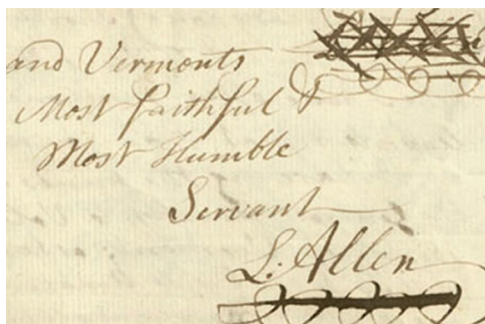 and Vermonts
Most faithful &
Most Humble
Servant
L: Allen